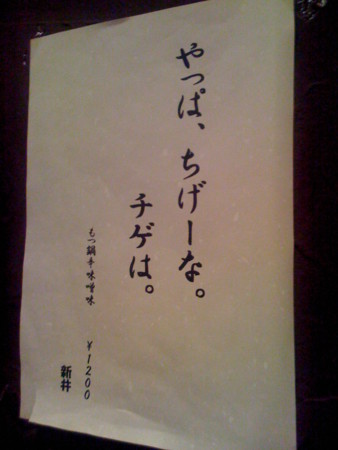 やっぱ、ちげーな。
チゲは。
もつ鍋辛味噌味 ¥1200
新井